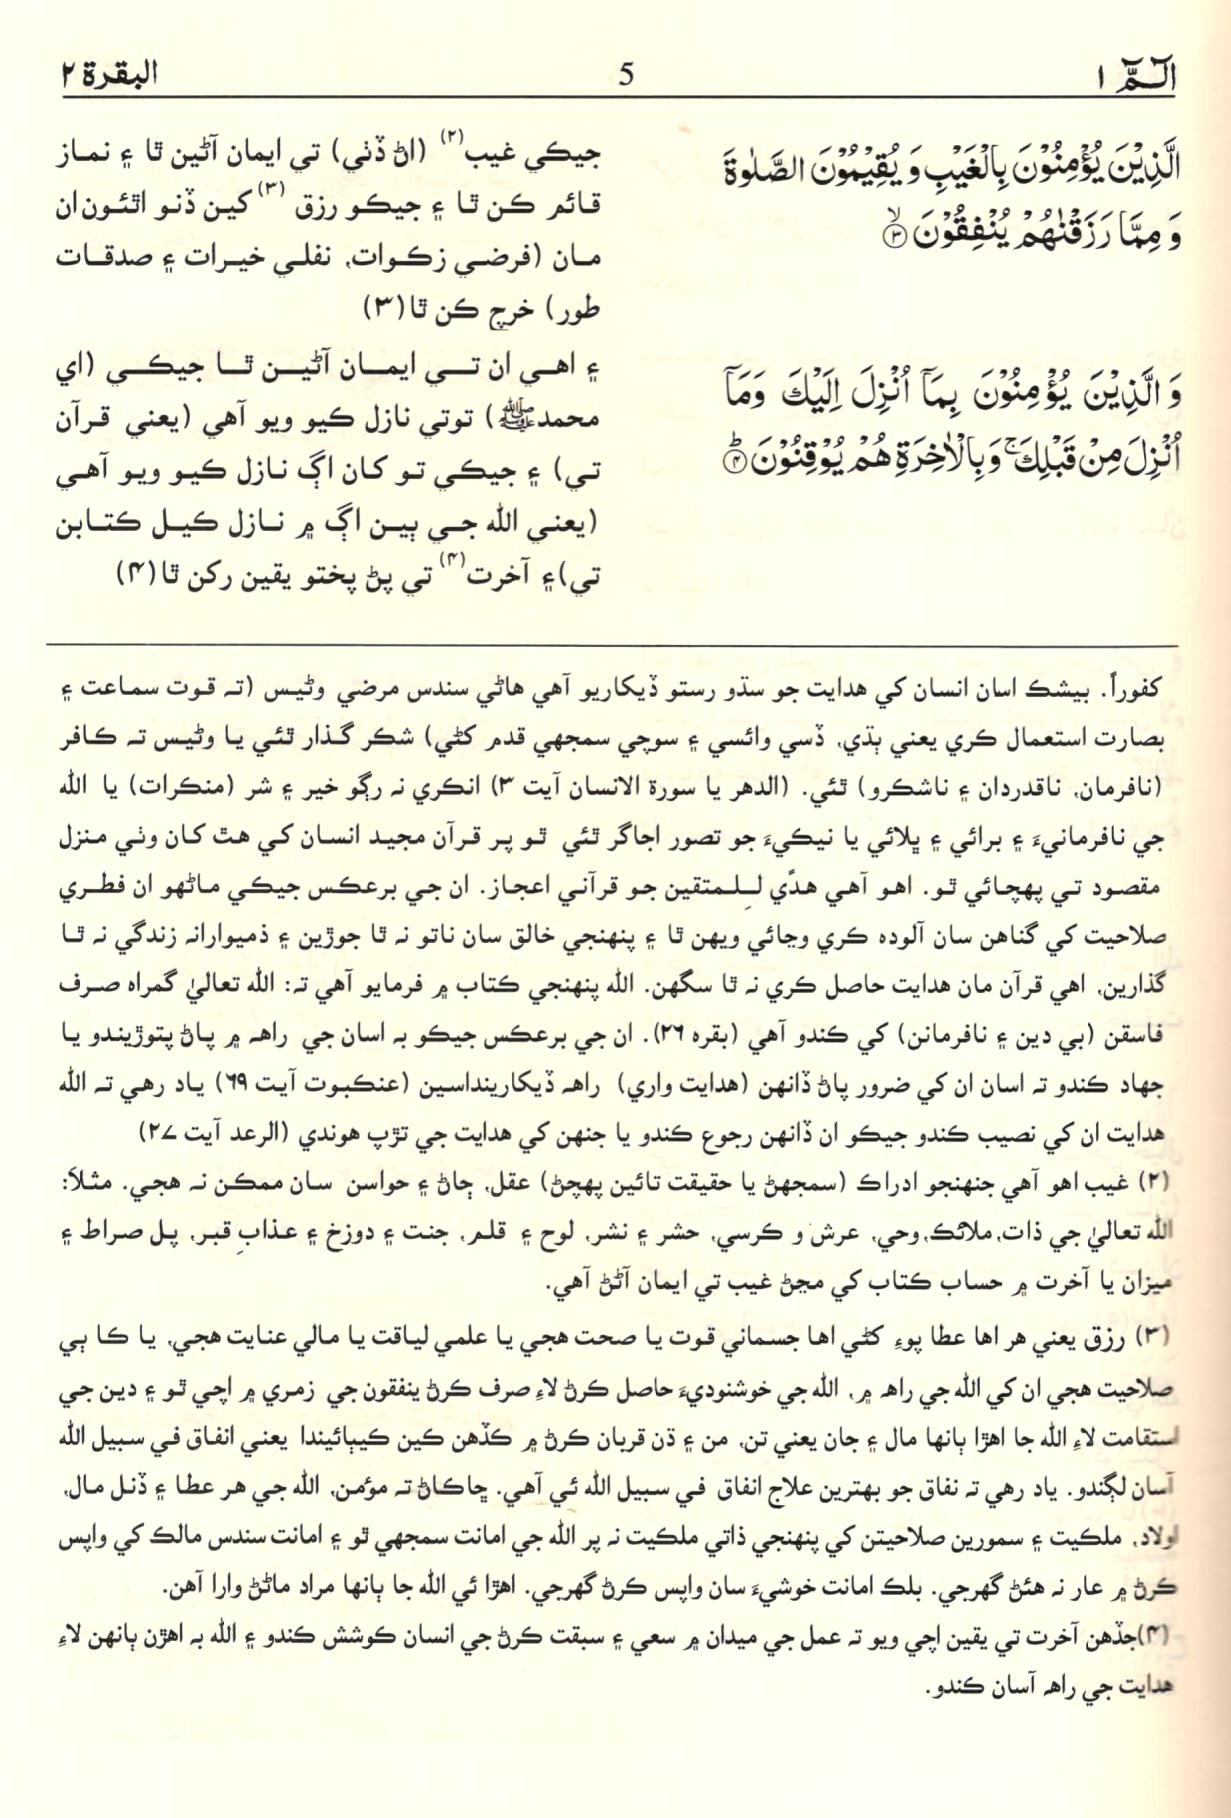 الٓمّٓ ١
5
البقرة ٢
الَّذِيْنَ يُؤْمِنُوْنَ بِالْغَيْبِ وَ يُقِيْمُوْنَ الصَّلٰوةَ
وَ مِمَّا رَزَقْنٰهُمْ يُنْفِقُوْنَ ۙ﴿۳﴾
جيڪي غيب(٢) (اڻ ڏٺي) تي ايمان آڻين ٿا ۽ نماز
قائم ڪن ٿا ۽ جيڪو رزق (٣) کين ڏنو اٿئون ان
مان (فرضي زڪوات، نفلي خيرات ۽ صدقات
طور) خرچ ڪن ٿا(٣)
وَ الَّذِيْنَ يُؤْمِنُوْنَ بِمَآ اُنْزِلَ اِلَيْكَ وَمَآ
اُنْزِلَ مِنْ قَبْلِكَ ۚ وَبِالْاٰخِرَةِ هُمْ يُوْقِنُوْنَ ؕ﴿۴﴾
۽ اهي ان تي ايمان آڻين ٿا جيڪي (اي
محمدﷺ) توتي نازل ڪيو ويو آهي (يعني قرآن
تي) ۽ جيڪي تو کان اڳ نازل ڪيو ويو آهي
(يعني الله جي ٻين اڳ ۾ نازل ڪيل ڪتابن
تي)۽ آخرت(۴) تي پڻ پختو يقين رکن ٿا(۴)
ڪفوراً. بيشڪ اسان انسان کي هدايت جو سڌو رستو ڏيکاريو آهي هاڻي سندس مرضي وڻيس (تہ قوت سماعت ۽
بصارت استعمال ڪري يعني ٻڌي، ڏسي وائسي ۽ سوچي سمجهي قدم کڻي) شڪر گذار ٿئي يا وڻيس تہ ڪافر
(نافرمان، ناقدردان ۽ ناشڪرو) ٿئي. (الدهر يا سورة الانسان آيت ٣) انڪري نہ رڳو خير ۽ شر (منڪرات) يا الله
جي نافرمانيءَ ۽ برائي ۽ ڀلائي يا نيڪيءَ جو تصور اجاگر ٿئي ٿو پر قرآن مجيد انسان کي هٿ کان وٺي منزل
مقصود تي پهچائي ٿو. اهو آهي هدًي لِلمتقين جو قرآني اعجاز. ان جي برعڪس جيڪي ماڻهو ان فطري
صلاحيت کي گناهن سان آلوده ڪري وڃائي ويهن ٿا ۽ پنهنجي خالق سان ناتو نہ ٿا جوڙين ۽ ذميوارانہ زندگي نہ ٿا
گذارين، اهي قرآن مان هدايت حاصل ڪري نہ ٿا سگهن. الله پنهنجي ڪتاب ۾ فرمايو آهي تہ: الله تعاليٰ گمراه صرف
فاسقن (بي دين ۽ نافرمانن) کي ڪندو آهي (بقره ٢٦). ان جي برعڪس جيڪو بہ اسان جي راهہ ۾ پاڻ پتوڙيندو يا
جهاد ڪندو تہ اسان ان کي ضرور پاڻ ڏانهن (هدايت واري) راهہ ڏيکارينداسين (عنڪبوت آيت ٦٩) ياد رهي تہ الله
هدايت ان کي نصيب ڪندو جيڪو ان ڏانهن رجوع ڪندو يا جنهن کي هدايت جي تڙپ هوندي (الرعد آيت ٢٧)
(٢) غيب اهو آهي جنهنجو ادراڪ (سمجهڻ يا حقيقت تائين پهچڻ) عقل، ڄاڻ ۽ حواسن سان ممڪن نہ هجي. مثلاً:
الله تعاليٰ جي ذات، ملائڪ، وحي، عرش و ڪرسي، حشر ۽ نشر، لوح ۽ قلم، جنت ۽ دوزخ ۽ عذابِ قبر، پل صراط ۽
ميزان يا آخرت ۾ حساب ڪتاب کي مڃڻ غيب تي ايمان آڻڻ آهي.
(٣) رزق يعني هر اها عطا پوءِ کڻي اها جسماني قوت يا صحت هجي يا علمي لياقت يا مالي عنايت هجي، يا ڪا ٻي
صلاحيت هجي ان کي الله جي راهہ ۾، الله جي خوشنوديءَ حاصل ڪرڻ لاءِ صرف ڪرڻ ينفقون جي زمري ۾ اچي ٿو ۽ دين جي
استقامت لاءِ الله جا اهڙا ٻانها مال ۽ جان يعني تن، من ۽ ڌن قربان ڪرڻ ۾ ڪڏهن ڪين ڪيٻائيندا يعني انفاق في سبيل الله
آسان لڳندو. ياد رهي تہ نفاق جو بهترين علاج انفاق في سبيل الله ئي آهي. ڇاڪاڻ تہ مؤمن، الله جي هر عطا ۽ ڏنل مال،
اولاد، ملڪيت ۽ سمورين صلاحيتن کي پنهنجي ذاتي ملڪيت نہ پر الله جي امانت سمجهي ٿو ۽ امانت سندس مالڪ کي واپس
ڪرڻ ۾ عار نہ هئڻ گهرجي. بلڪ امانت خوشيءَ سان واپس ڪرڻ گهرجي. اهڙا ئي الله جا ٻانها مراد ماڻڻ وارا آهن.
(۴)جڏهن آخرت تي يقين اچي ويو تہ عمل جي ميدان ۾ سعي ۽ سبقت ڪرڻ جي انسان ڪوشش ڪندو ۽ الله بہ اهڙن ٻانهن لاءِ
هدايت جي راهہ آسان ڪندو.